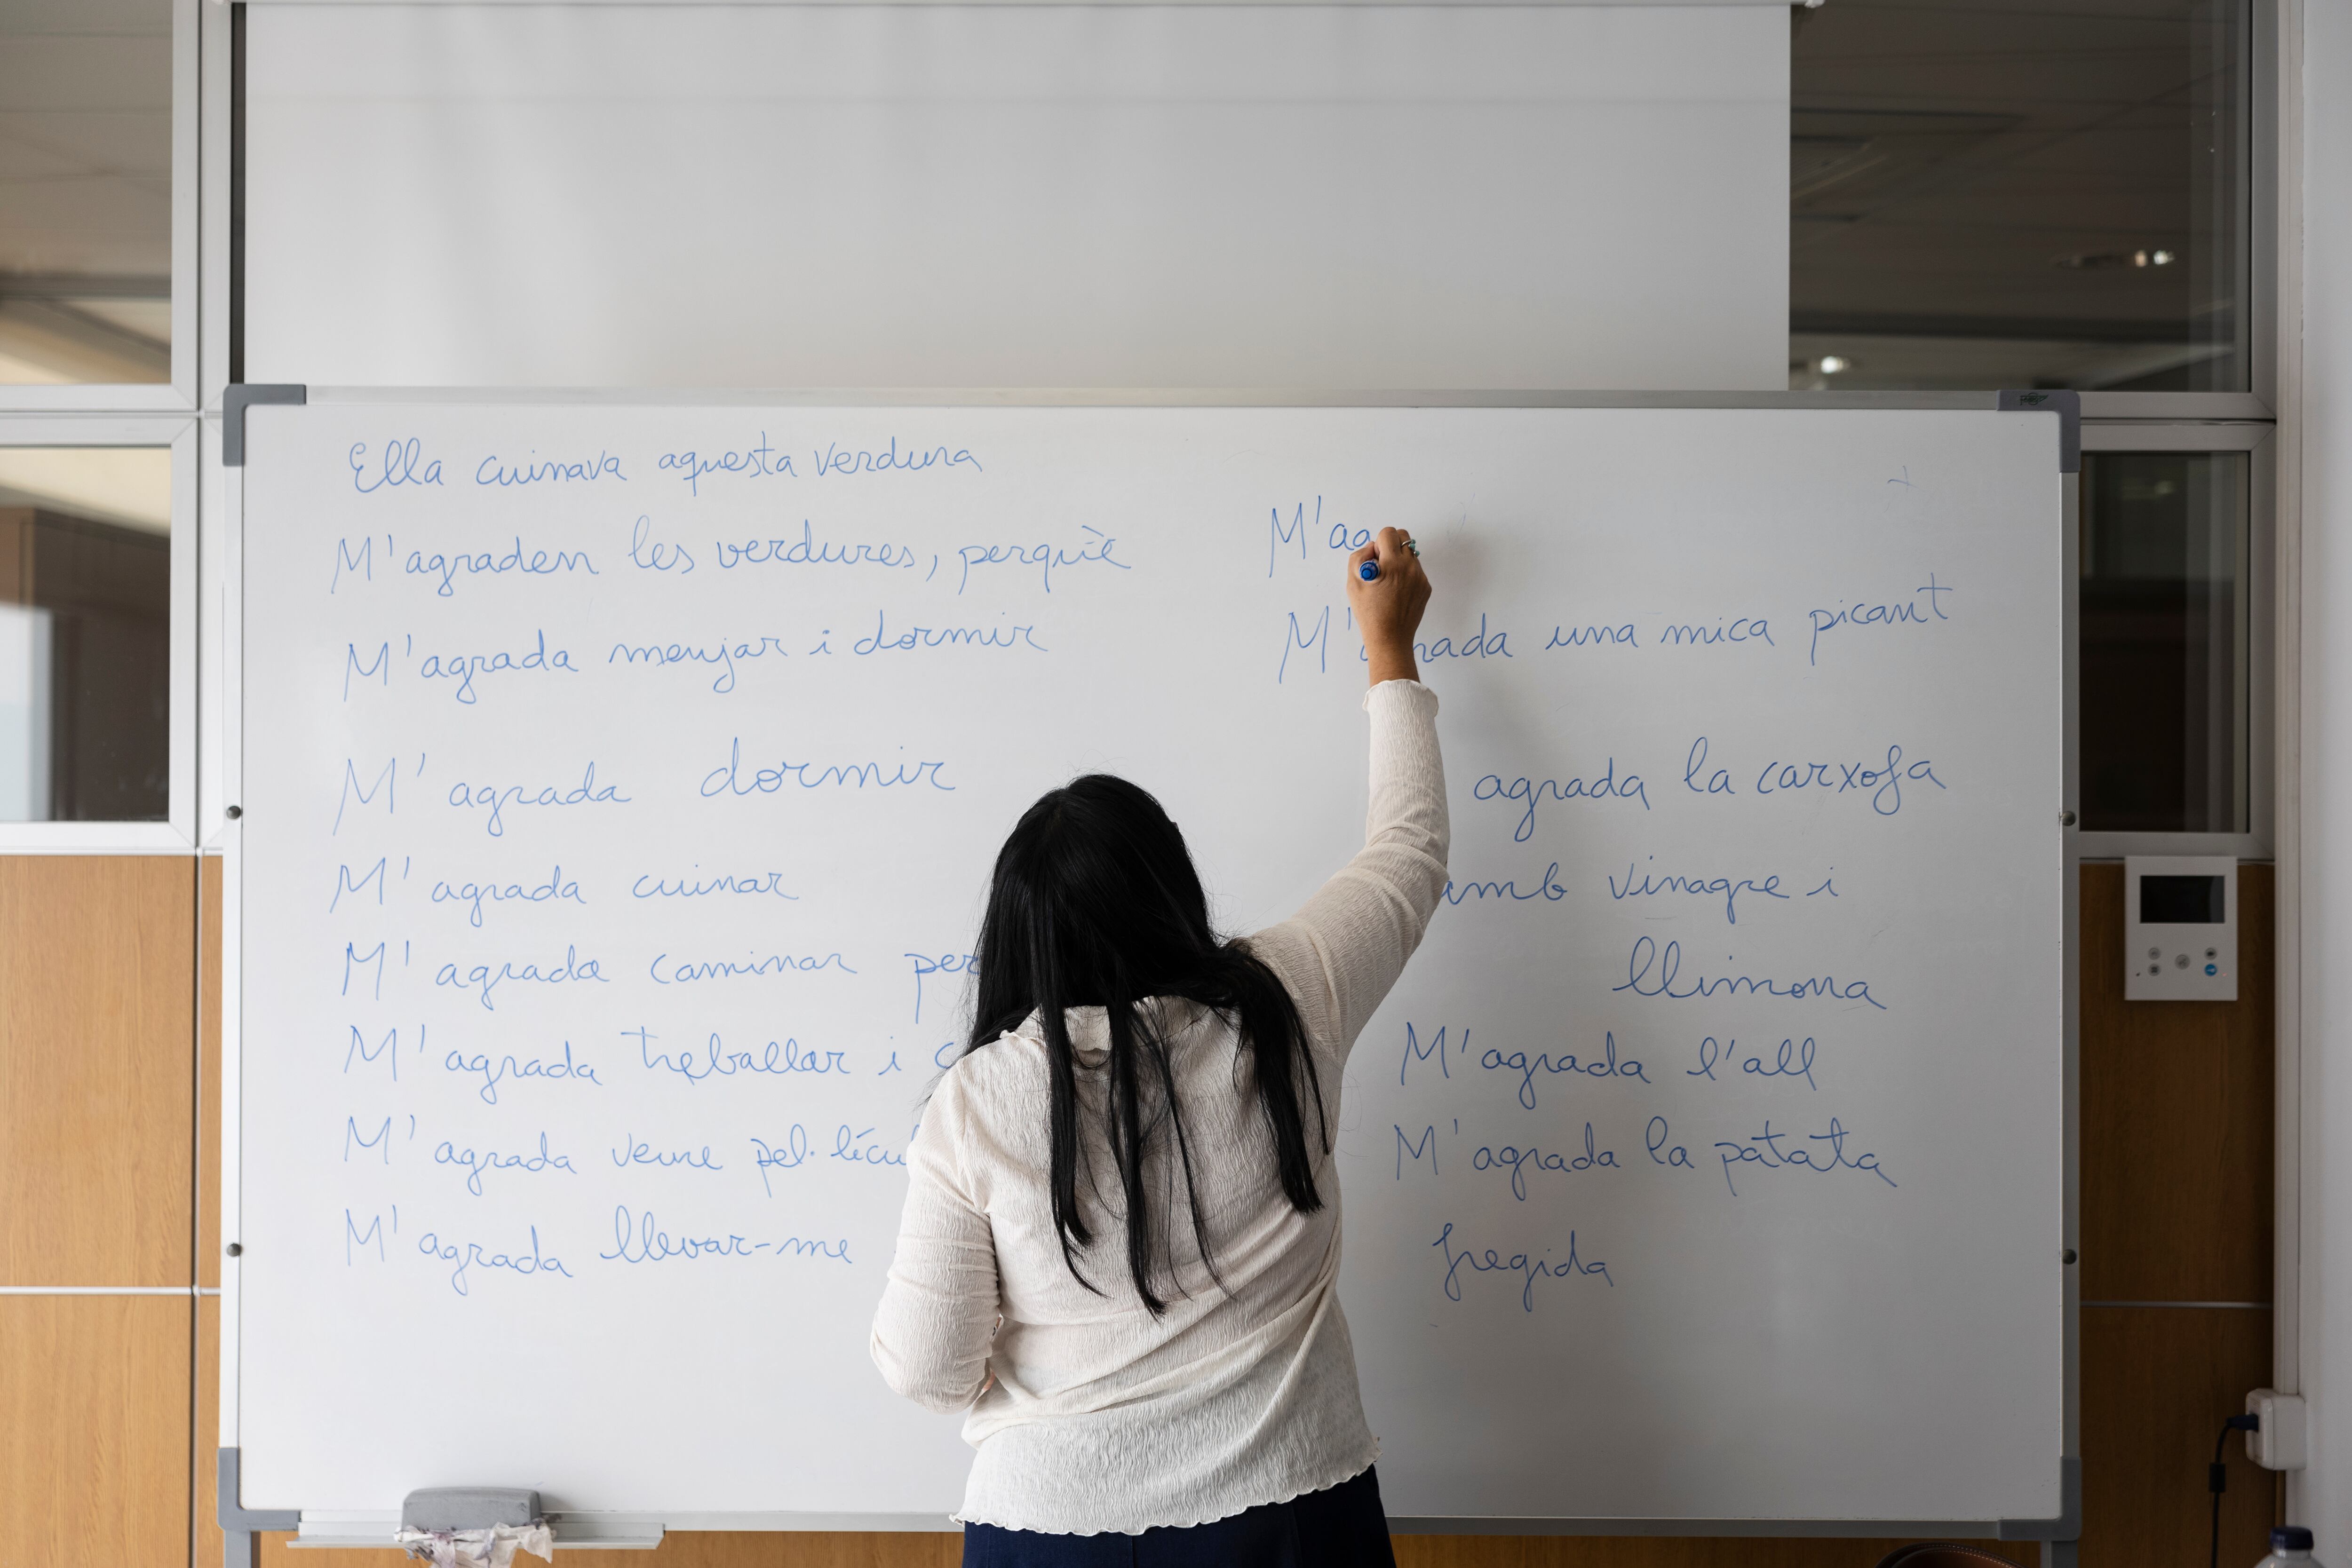 Ella cuinava aquesta verdura
M'agraden les verdures, perquè
M'agrada menjar i dormir
M' agrada dormir
M' agrada cuinar
M' agrada caminar per
M' agrada treballar i
M' agrada veure pel·lícu
M' agrada llevar-me
M'ag
M'agrada una mica picant
agrada la carxofa
amb vinagre i
llimona
M'agrada l'all
M'agrada la patata
fregida